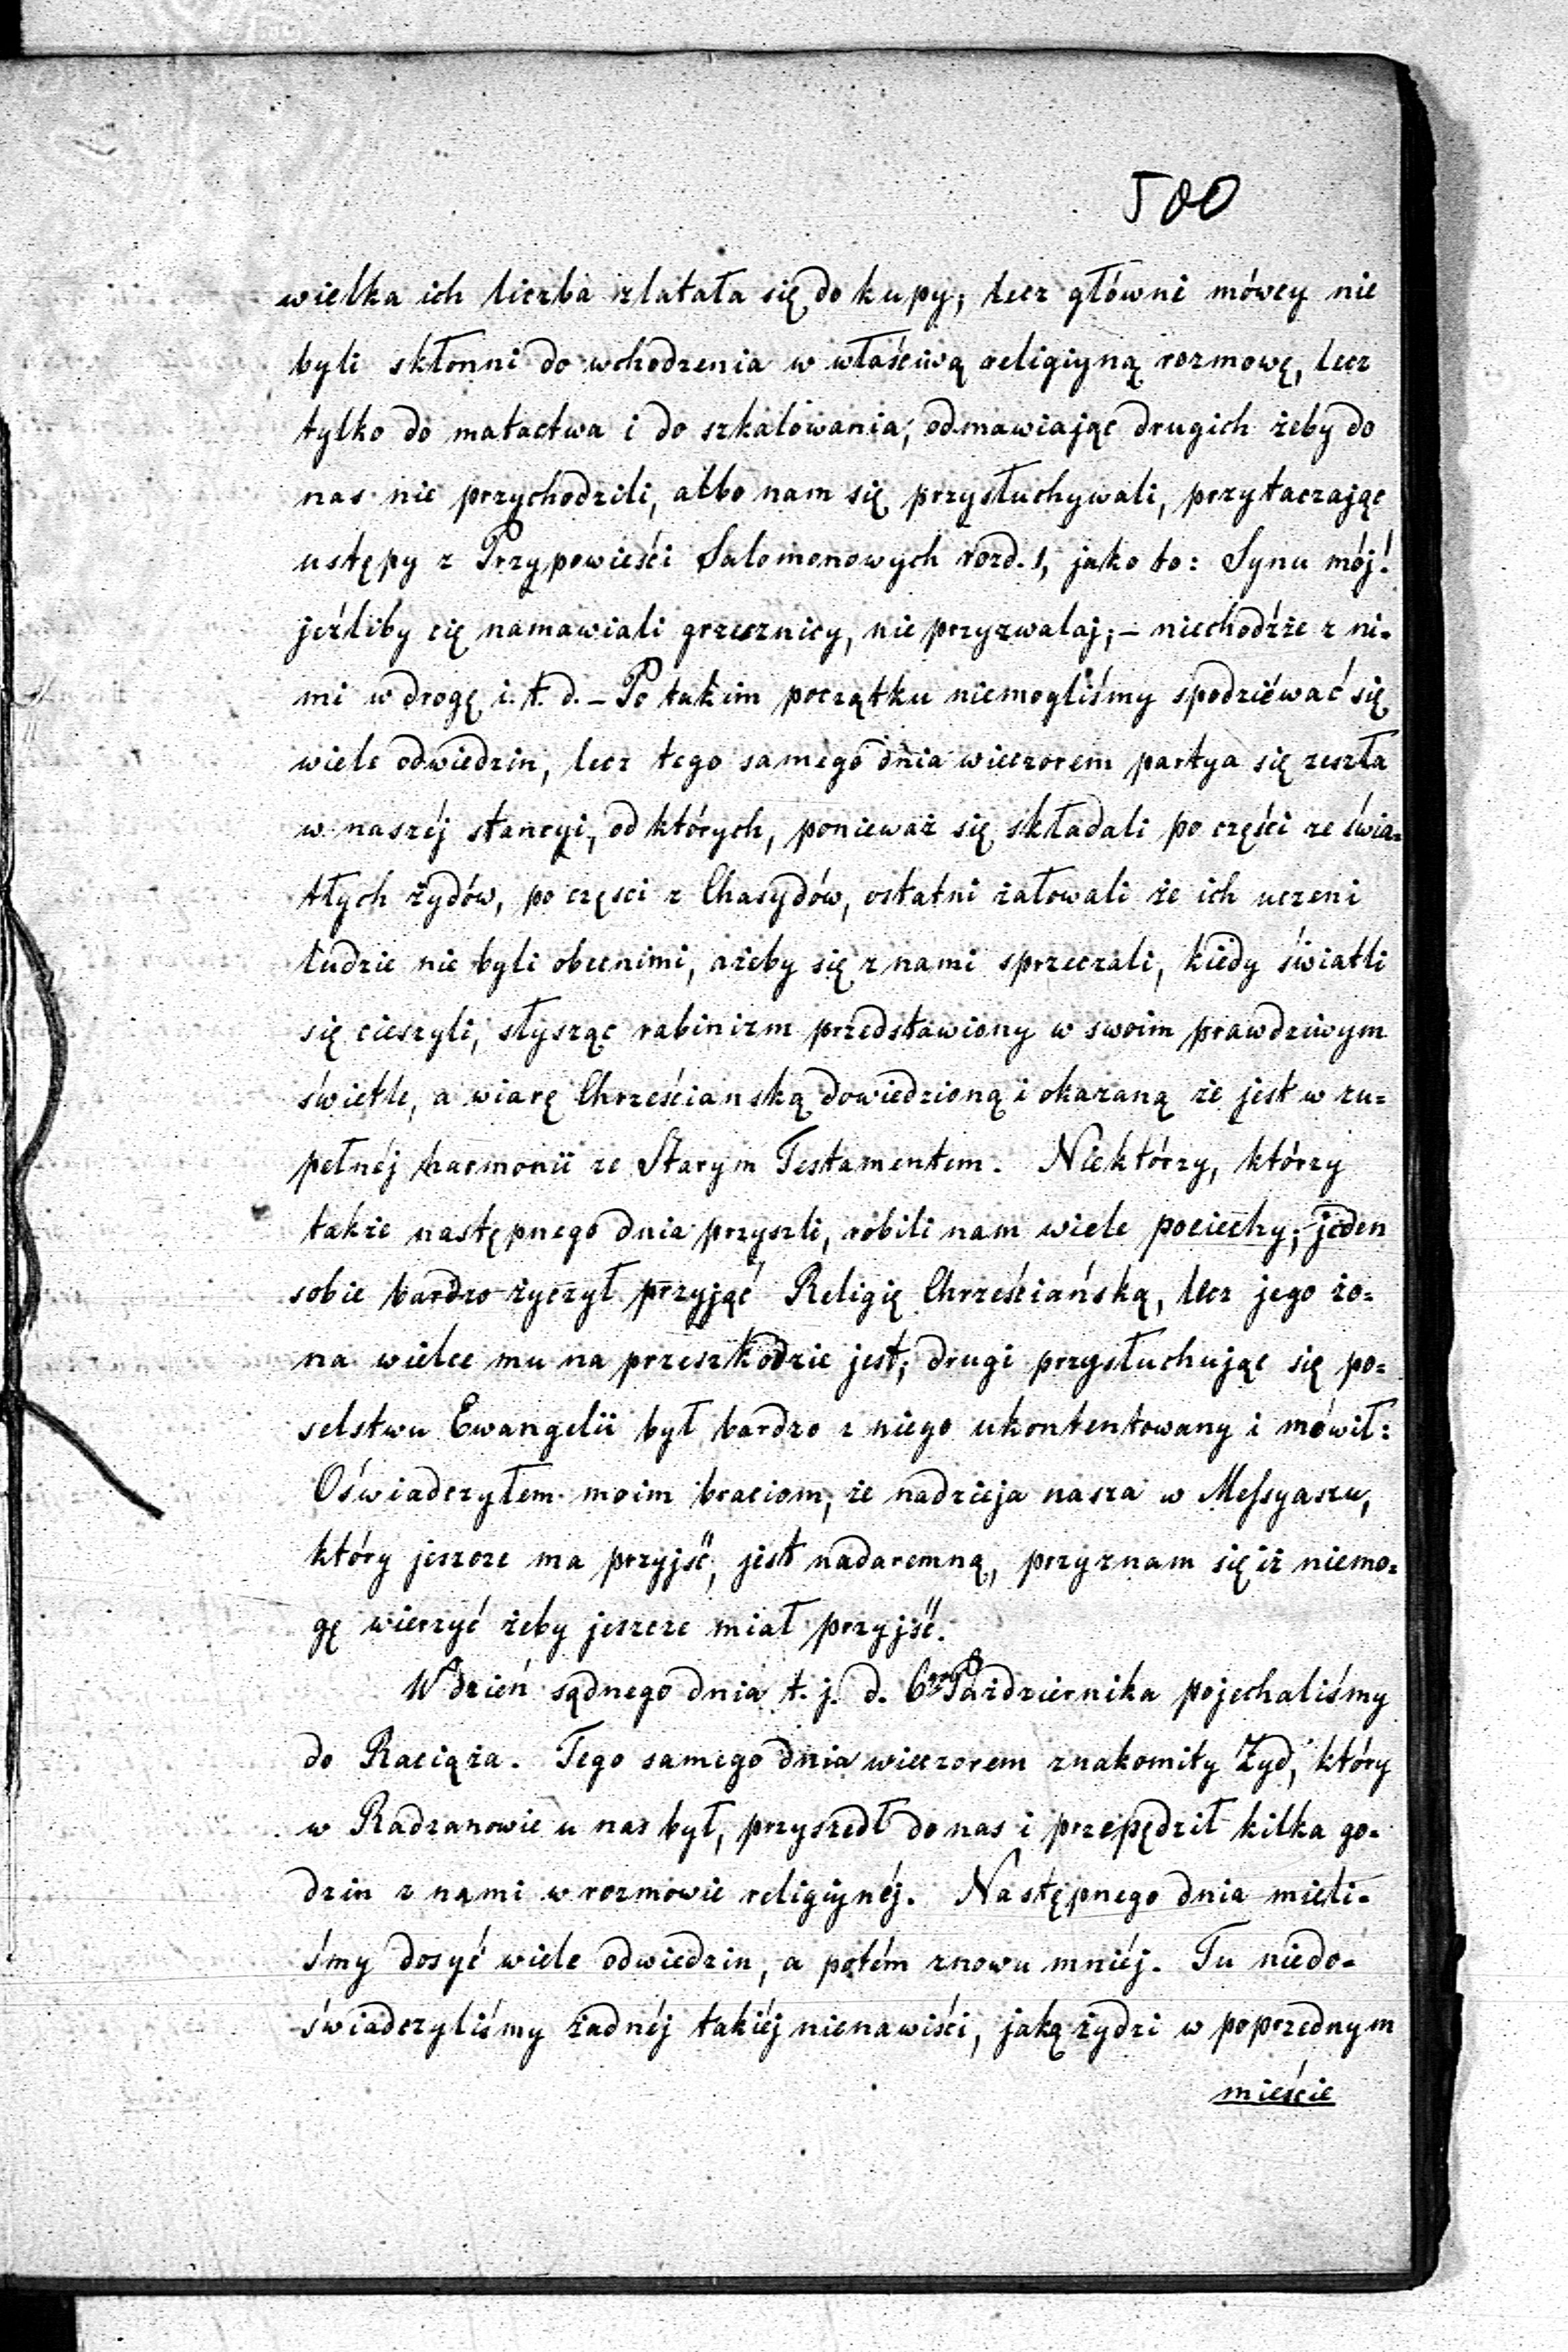 500
wielka ich liczba zlatała się do kupy; lecz główni mówcy nie
byli skłonni do wchodzenia w właściwą religiyną rozmowę, lecz
tylko do matactwa i do szkalowania, odmawiając drugich żeby do
nas nie przychodzili, albo nam się przysłuchywali, przytaczając
ustępy z Przypowieści Salomonowych rozd. 1, jako to: Synu mój!
jeźliby cię namawiali grzesznicy, nie przyzwalaj; – niechodźże z ni-
mi w drogę i. t. d. – Po takim początku niemogliśmy spodziéwać się
wiele odwiedzin, lecz tego samego dnia wieczorem partya się zeszła
w naszéj stancyi, od których, ponieważ się składali po części ze świa-
tłych żydów, po częsci z Chasydów, ostatni żałowali że ich uczeni
ludzie nie byli obecnimi, ażeby się z nami sprzeczali, kiedy światli
się cieszyli, słysząc rabinizm przedstawiony w swoim prawdziwym
świetle, a wiarę Chrześcianską dowiedzioną i okazaną że jest w zu-
pełnéj harmonii ze Starym Testamentem. Niektórzy, którzy
także następnego dnia przyszli, robili nam wiele pociechy; jeden
sobie bardzo życzył przyjąć Religię Chrześciańską, lecz jego żo-
na wielce mu na przeszkodzie jest; drugi przysłuchując się po-
selstwu Ewangelii był bardzo z niego ukontentowany i mówił:
Oświadczyłem moim braciom, że nadzieja nasza w Messyaszu,
który jeszcze ma przyjść, jest nadaremną, przyznam się iż niemo-
gę wierzyć żeby jeszcze miał przyjść.
W dzień sądnego dnia t. j. d. 6go Październiku pojechaliśmy
do Raciąża. Tego samego dnia wieczorem znakomity Żyd, który
w Radzanowie u nas był, przyszedł do nas i przepędził kilka go-
dzin z nami w rozmowie religiynéj. Następnego dnia mieli-
śmy dosyć wiele odwiedzin, a potém znowu mniéj. Tu niedo-
świadczyliśmy żadnéj takiéj nienawiści, jaką żydzi w poprzednym
mieście